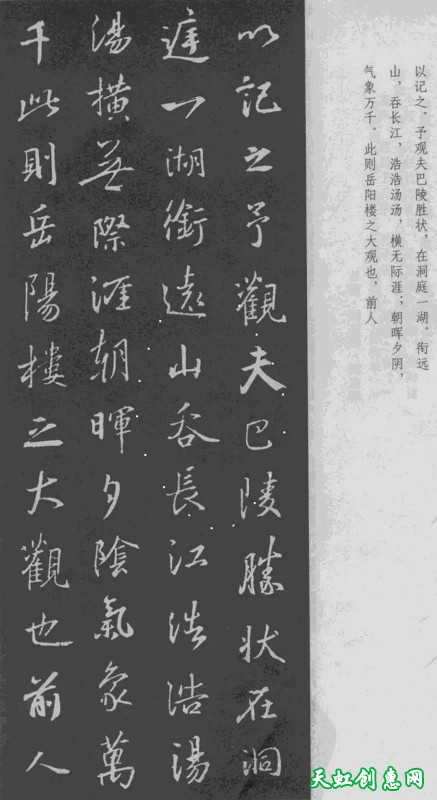 以记之。予观夫巴陵胜状，在洞庭一湖。衔远
山，吞长江，浩浩汤汤，横无际涯；朝晖夕阴，
气象万千。此则岳阳楼之大观也，前人
以記之予觀夫巴陵勝状在洞
庭一湖銜遠山吞長江浩浩湯
湯橫無際涯朝暉夕陰氣象萬
千此則岳陽樓之大觀也前人
天虹创惠网